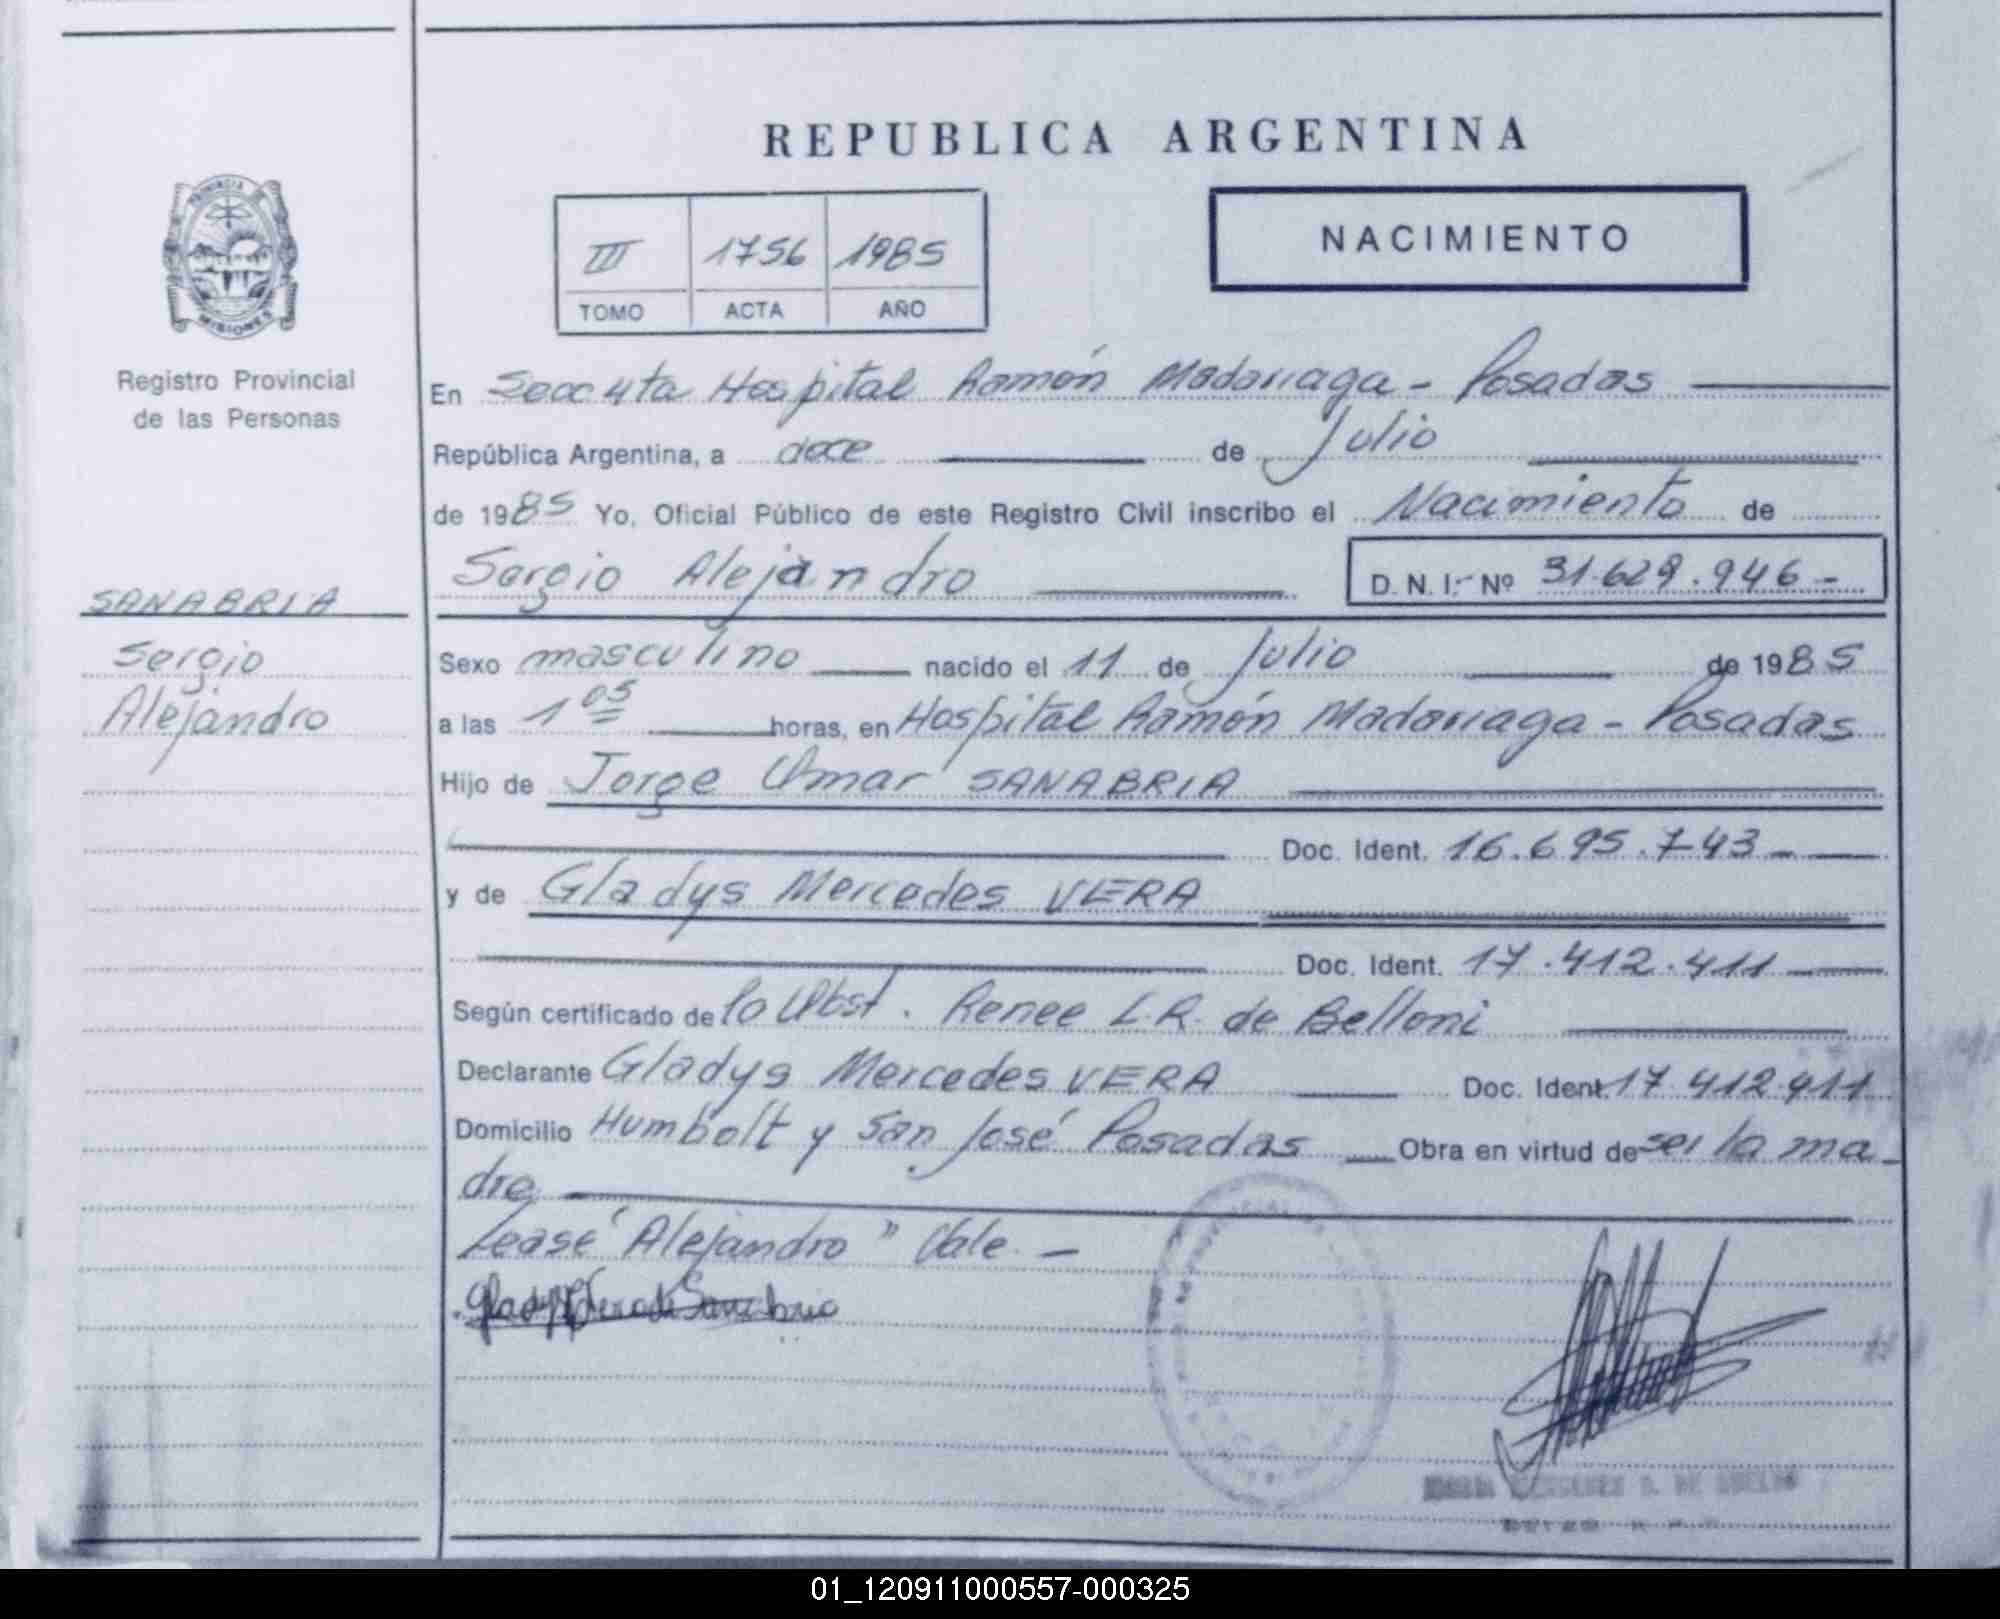 REPUBLICA ARGENTINA
PROVINCIA DE
MISIONES
Registro Provincial
de las Personas
III 1756 1985
TOMO ACTA AÑO
NACIMIENTO
SANABRIA
Sergio
Alejandro
En Hospital Ramón Madariaga - Posadas
República Argentina, a doce de Julio
de 1985 Yo, Oficial Público de este Registro Civil inscribo el Nacimiento de
Sergio Alejandro D. N. I. Nº 31.629.946 -
Sexo masculino nacido el 11 de Julio de 1985
a las 1 05 horas, en Hospital Ramón Madariaga - Posadas
Hijo de Jorge Omar SANABRIA
Doc. Ident. 16.695.743 -
y de Gladys Mercedes VERA
Doc. Ident. 17.412.411
Según certificado de la Obst. Renee L.R. de Belloni
Declarante Gladys Mercedes VERA Doc. Ident. 17.412.411
Domicilio Humbolt y San José Posadas Obra en virtud de ser la ma-
dre
Lease "Alejandro" Vale. -
Gladys Vera de Sanabria
01_120911000557-000325